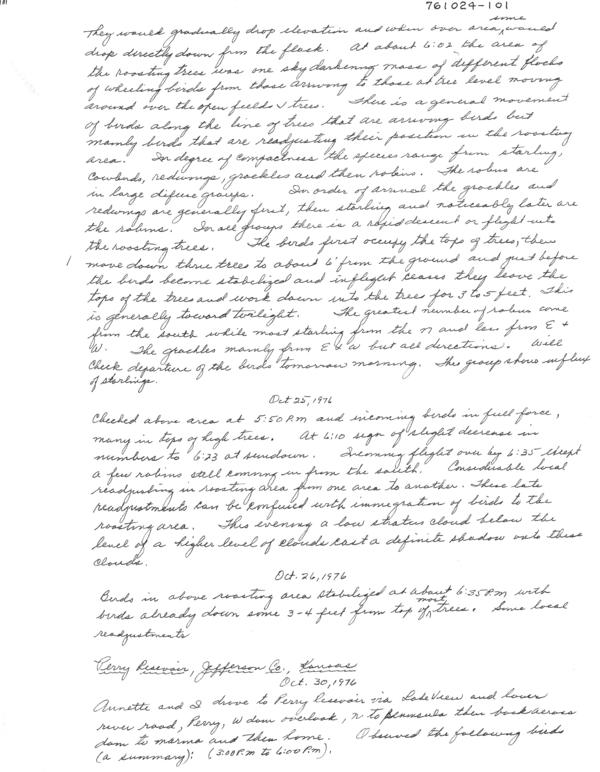 761024-101
They would gradually drop elevation and when over area, some would
drop directly down from the flock. At about 6:02 the area of
the roosting trees was one sky darkening mass of different flocks
of wheeling birds from those arriving to those at tree level moving
around over the open fields & trees. There is a general movement
of birds along the line of trees that are arriving birds but
mainly birds that are readjusting their position in the roosting
area. In degree of compactness the species range from starling,
Cowbirds, redwings, grackles and then robins. The robins are
in large difuse groups. In order of arrival the grackles and
redwings are generally first, then starling and noticeably later are
the robins. In all groups there is a rapid descent or flight into
the roosting trees. The birds first occupy the top of trees, then
move down thru trees to about 6' from the ground and just before
the birds become stabelized and inflight ceases they leave the
tops of the trees and work down into the trees for 3 to 5 feet. This
is generally toward twilight. The greatest number of robins come
from the south while most starling from the n and less from E &
W. The grackles mainly from E & W but all directions. Will
Check departure of the birds tomorrow morning. This group shows influx
of starlings.
Oct 25, 1976
Checked above area at 5:50 P.m and incoming birds in full force,
many in tops of high trees. At 6:10 sign of slight decrease in
numbers to 6:23 at sundown. Incoming flight over by 6:35 except
a few robins still comming in from the south. Considerable local
readjusting in roosting area from one area to another. These late
readjustments can be confused with immegration of birds to the
roosting area. This evening a low stratus cloud below the
level of a higher level of clouds cast a definite shadow onto these
clouds.
Oct. 26, 1976
Birds in above roosting area stabelized at about 6:35 P.m with
birds already down some 3-4 feet from top of most trees. Some local
readjustments
Perry Resevoir, Jefferson Co., Kansas
Oct. 30, 1976
Annette and I drove to Perry resevoir via Lake View and lower
river road, Perry, W dam overlook, n to peninsula then back across
dam to marina and then home. Observed the following birds
(a summary): (3:00 P.m to 6:00 P.m).